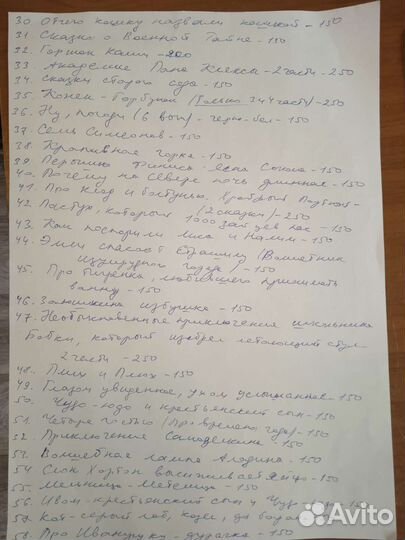 30. Отчего кошку назвали кошкой - 150
31 Сказка о Военной Тайне - 150
32. Горшок каши - 200
33. Академия Пана Кляксы - 2 части - 250
34. Сказки старого
35. Конек-Горбунок (только 3 и 4 части) - 250
36. Ну, погоди (6 вып) - черно-бел - 150
37. Семь Симеонов - 150
38. Крапивная горка - 150
39. Перышко Финиста Ясна Сокола - 150
40. Почему на севере ночь длинная - 150
41. Про Храбрый
42. Пастух, который (2 сказки) - 250
1000 зайцев пас - 150
43. Как поспорили лиса и Налим - 150
44. Элли спасает Страшилу (Волшебник
изумрудного города) - 150
45. Про Тигренка, любившего принимать
ванну - 150
46. Заюшкина избушка - 150
47. Необыкновенные приключения школьника
Бобки, который изобрел летающий стул
2 части - 250
48. Плих и Плюх - 150
49. Глазом увиденное, ухом услышанное - 150
50. Чудо-юдо и крестьянский сын - 150
51. Четыре гостьи (Про времена года) - 150
52. Приключения Самоделкина - 150
53. Волшебная лампа Аладина - 150
54 Слон Хортон высиживает яйцо - 150
55. Мельница-Метелица - 150
56. Иван-крестьянский сын и Чудо-юдо
57. Кот-серый лоб, козел, да баран
58. Про Иванушку-дурачка - 150
Avito